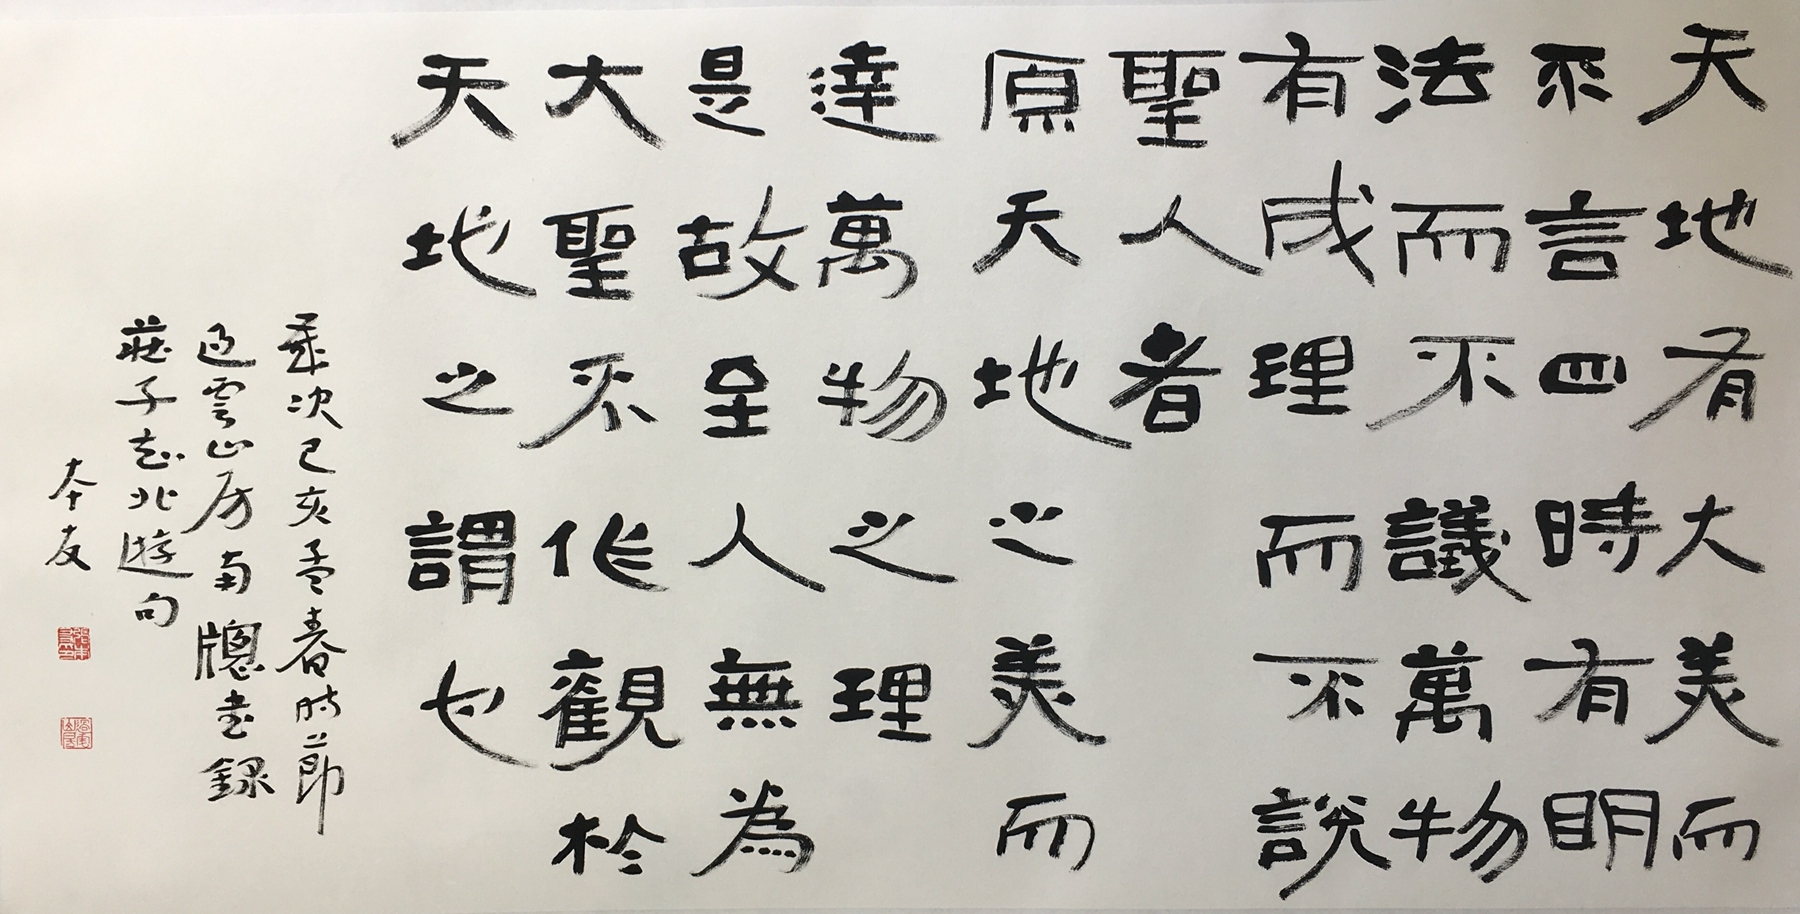 天地有大美而
不言四時有明
法而不議萬物
有成理而不說
聖人者
原天地之美而
達萬物之理
是故至人無為
大聖不作觀於
天地之謂也
歲次己亥孟春時節
過雲山房南牕書錄
莊子知北遊句
本友